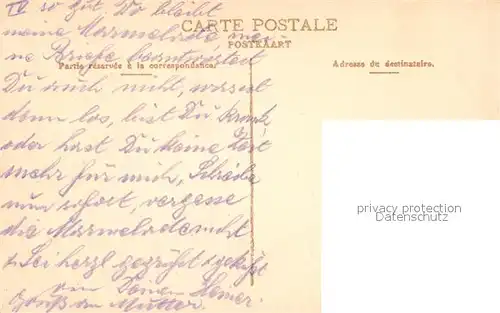 IV so gut, Wo bleibt
CARTE POSTALE
meine Marmelade mei-
POSTKAART
ne Briefe beantwortest
Partie réservée à la correspondance.
Adresse du destinataire.
Du auch nicht, was ist
denn los, bist Du krank
oder hast Du keine Zeit
mehr für mich, Schreibe
nun sofort, vergesse
die Marmelade nicht
Sei herzl gegrüßt geküßt
von Deinem
Gruß an Mutter.
privacy protection
Datenschutz